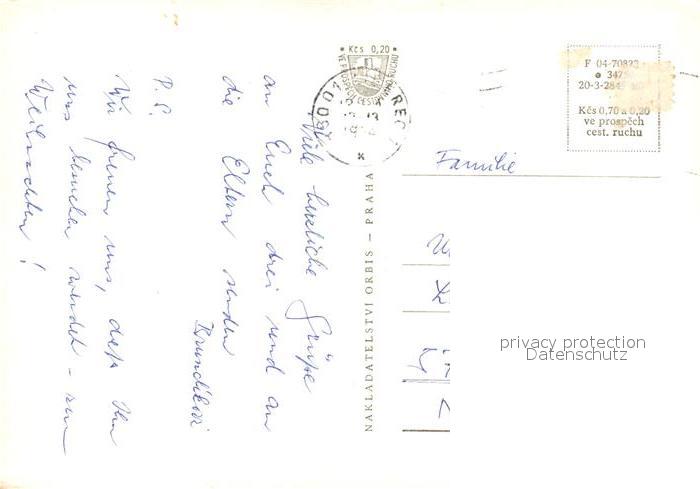 Viele herzliche Grüße
an Euch drei und an
die Eltern senden
P.S.
Wir freuen uns, daß Ihr
uns besuchen werdet - zum
Weihnachten!
NAKLADATELSTVI ORBIS — PRAHA
• Kčs 0,20 •
VE PROSPĚCH CESTOVNÍHO RUCHU
F 04-70823
20-3-284
Kčs 0,70 a 0,20
ve prospěch
cest. ruchu
Familie
privacy protection
Datenschutz